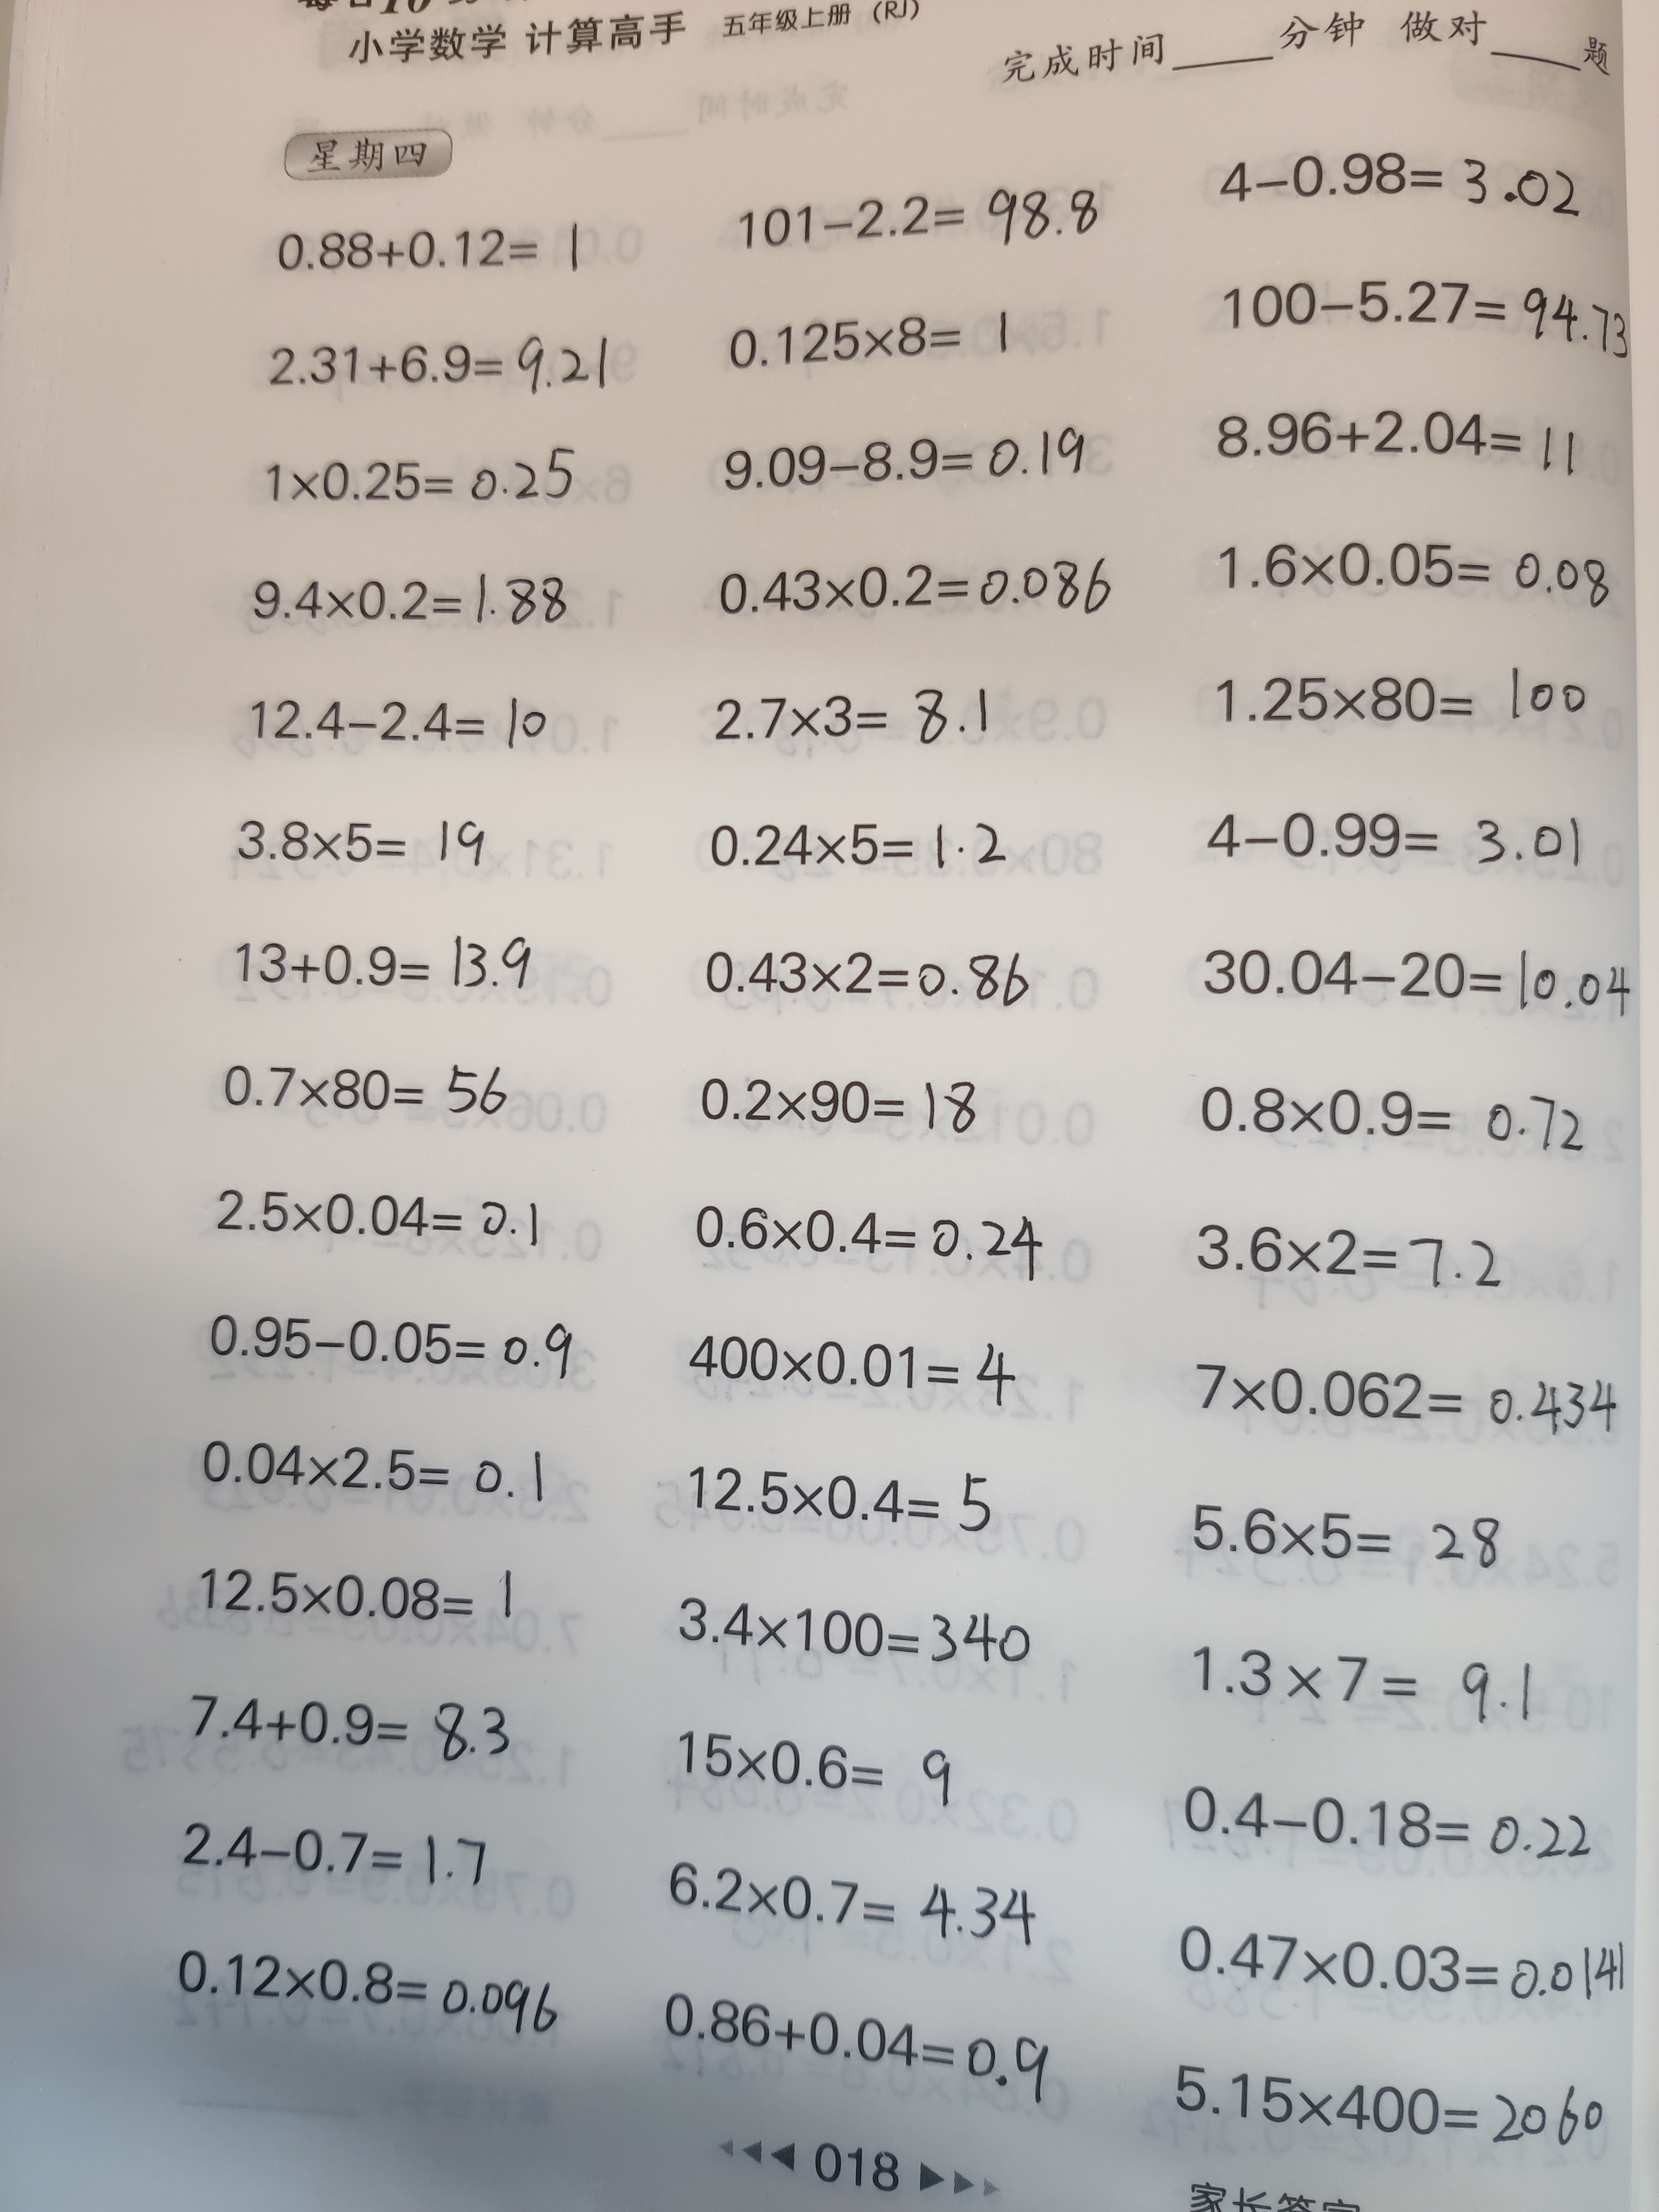 小学数学 计算高手 五年级上册 (RJ)
完成时间____分钟 做对____题
星期四
0.88+0.12= 1
2.31+6.9= 9.21
1×0.25= 0.25
9.4×0.2= 1.88
12.4−2.4= 10
3.8×5= 19
13+0.9= 13.9
0.7×80= 56
2.5×0.04= 0.1
0.95−0.05= 0.9
0.04×2.5= 0.1
12.5×0.08= 1
7.4+0.9= 8.3
2.4−0.7= 1.7
0.12×0.8= 0.096
101−2.2= 98.8
0.125×8= 1
9.09−8.9= 0.19
0.43×0.2= 0.086
2.7×3= 8.1
0.24×5= 1.2
0.43×2= 0.86
0.2×90= 18
0.6×0.4= 0.24
400×0.01= 4
12.5×0.4= 5
3.4×100= 340
15×0.6= 9
6.2×0.7= 4.34
0.86+0.04= 0.9
4−0.98= 3.02
100−5.27= 94.73
8.96+2.04= 11
1.6×0.05= 0.08
1.25×80= 100
4−0.99= 3.01
30.04−20= 10.04
0.8×0.9= 0.72
3.6×2= 7.2
7×0.062= 0.434
5.6×5= 28
1.3×7= 9.1
0.4−0.18= 0.22
0.47×0.03= 0.0141
5.15×400= 2060
018
家长签字